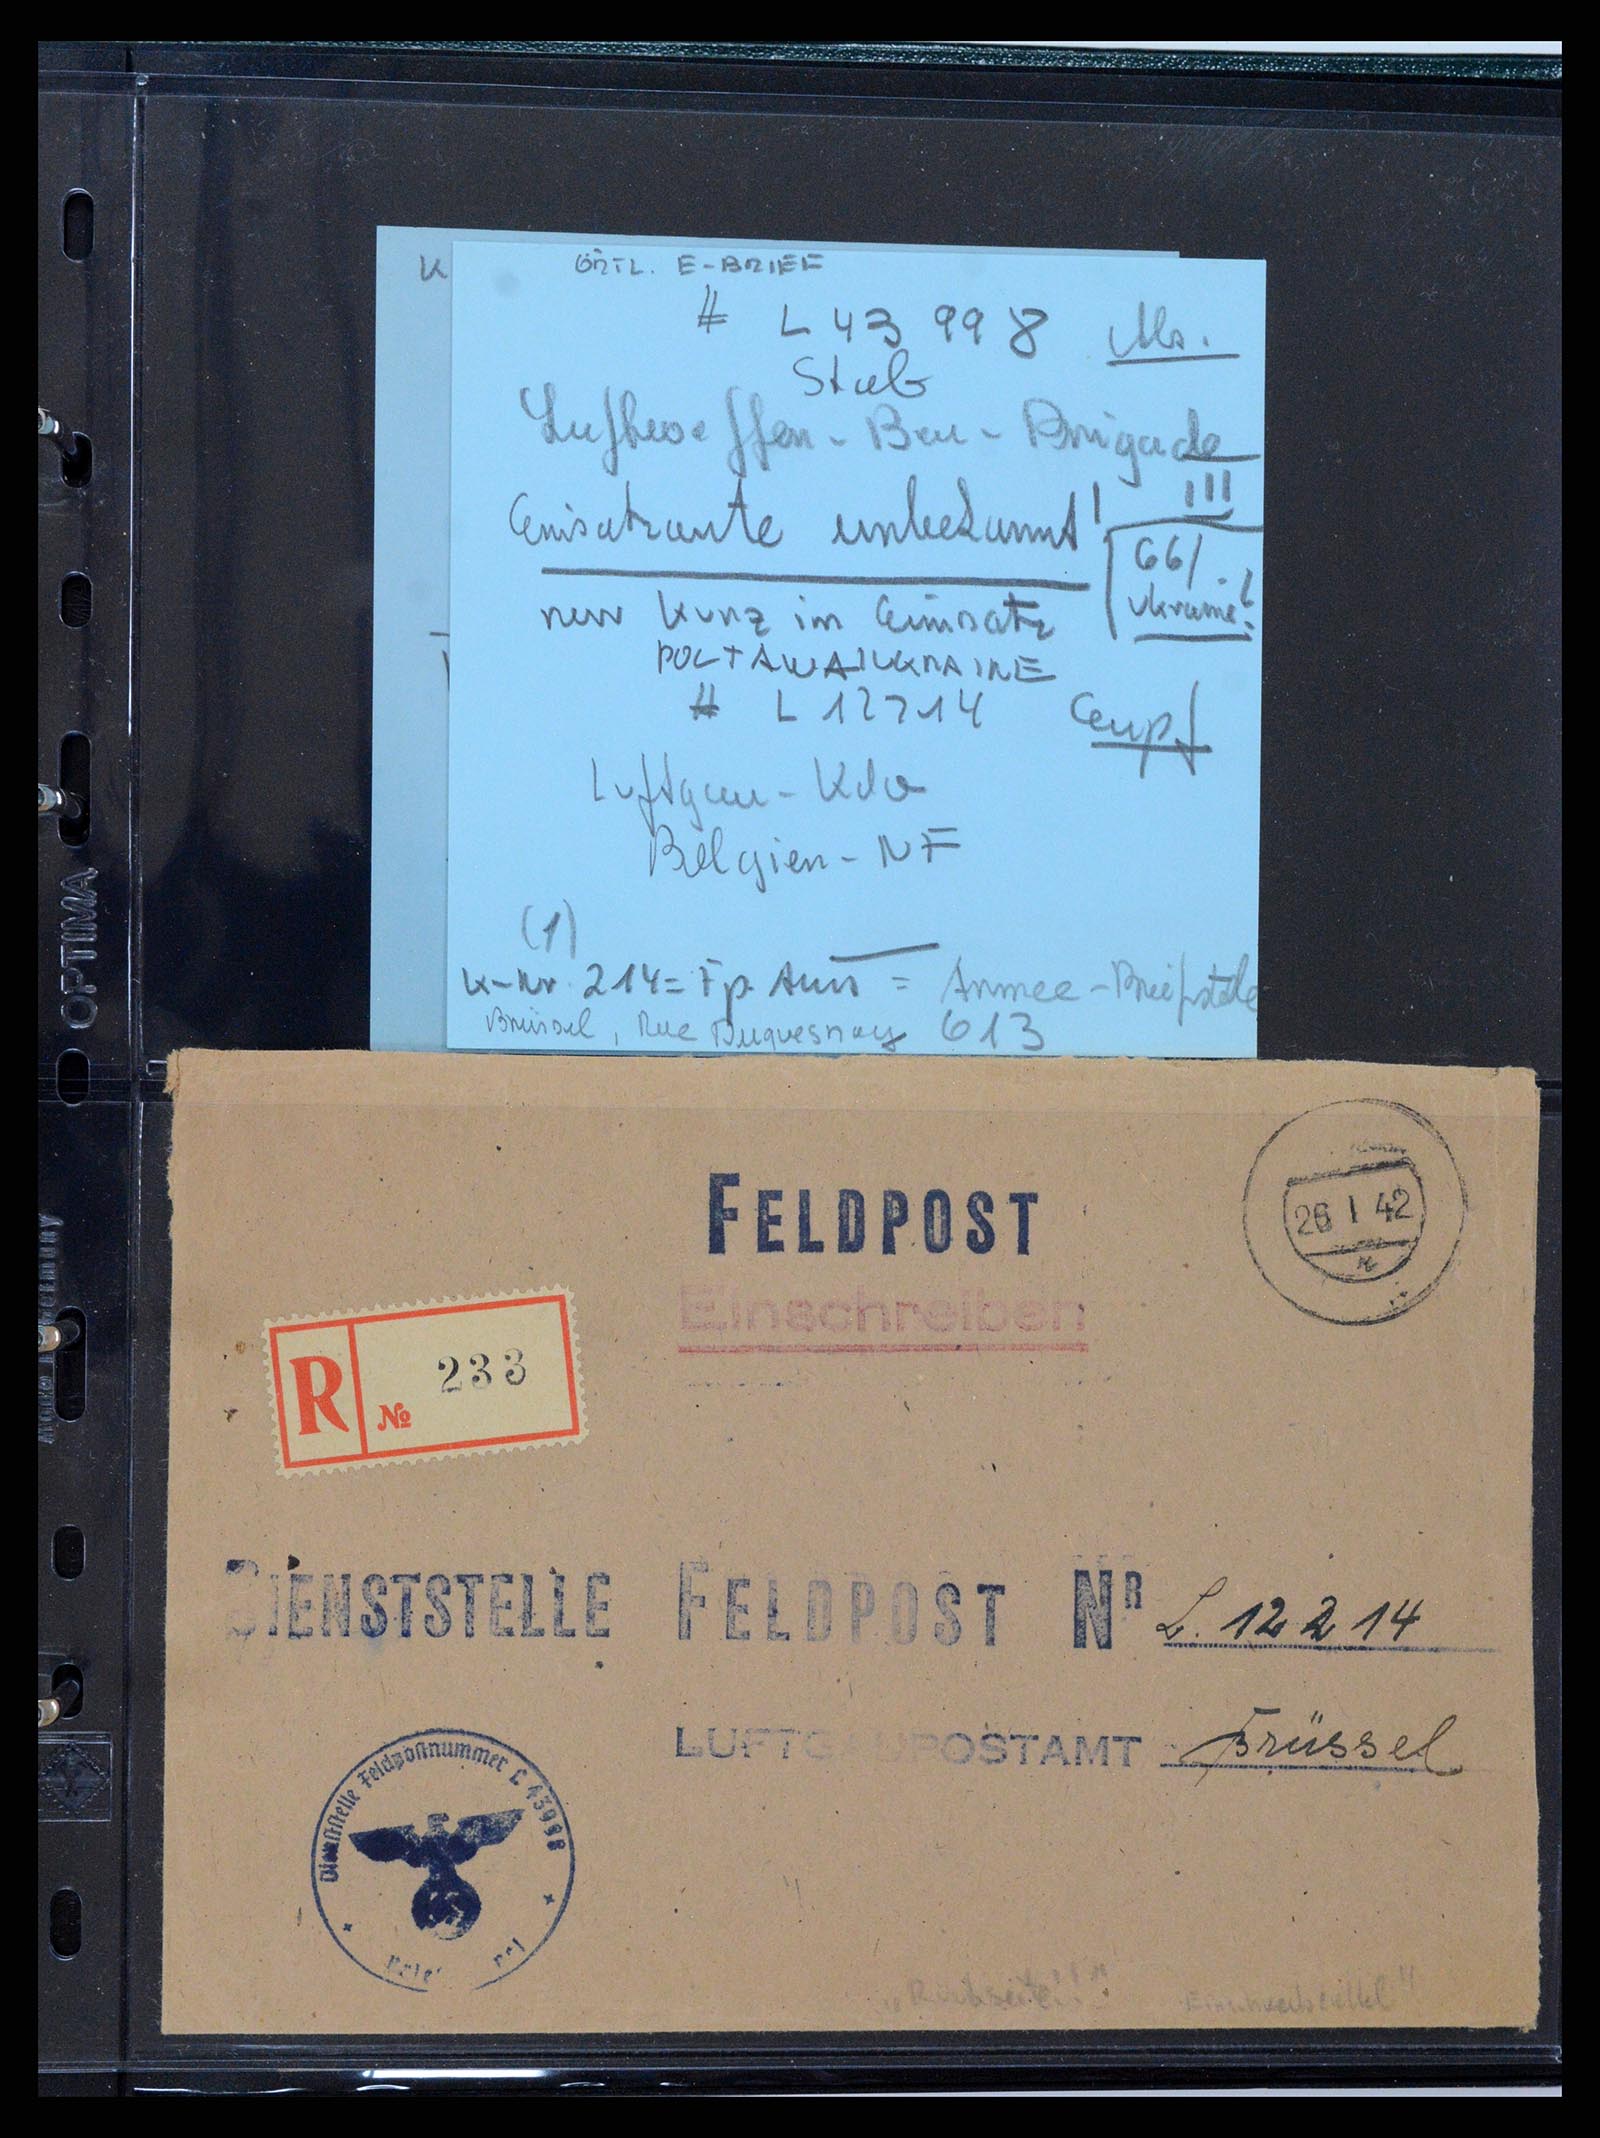 K
ÖRTL. E-BRIEF
# L 43 998
Stab
Luftwaffen-Bau-Brigade
III
Einsatzorte unbekannt!
66/
Ukraine!
nur kurz im Einsatz
POLTAWA/UKRAINE
# L 12714 Empf
Luftgau-Kdo
Belgien-NF
(1)
K-Nr. 214 = Fp. Amt = Armee-Briefstelle
Brüssel, Rue Duquesnoy 613
OPTIMA
FELDPOST
26 1 42
Einschreiben
R № 233
DIENSTSTELLE FELDPOST NR L. 12 2 14
LUFTG POSTAMT Brüssel
Dienststelle Feldpostnummer L 43998
"Rückseite!!"